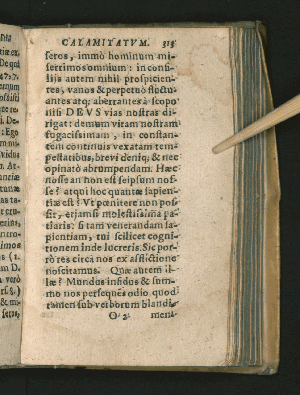 CALAMITATVM. 315
seros, immò hominum mi-
serrimos omnium: in consi-
lijs autem nihil prospicien-
tes, vanos & perpetuò fluctu-
antes atq; aberrantes à scopo
nisi DEVS vias nostras di-
rigat: demum vitam nostram
fugacissimam, in constan-
tem continuis vexatam tem-
pestatibus, brevi deniq; & nec
opinatò abrumpendam. Hæc
nosse an non est seipsum nos-
se? atqui hoc quantæ sapien-
tiæ est? Vt pœnitere non pos-
sit, etiamsi molestissima pa-
tiaris: si tam venerandam sa-
pientiam, tui scilicet cogni-
tionem inde lucreris. Sic por-
rò res circa nos ex afflictione
noscitamus. Quæ autem il-
læ? Mundus infidus & sum-
mo nos persequés odio quod
tamen sub verborum blandi-
O 2 meni-